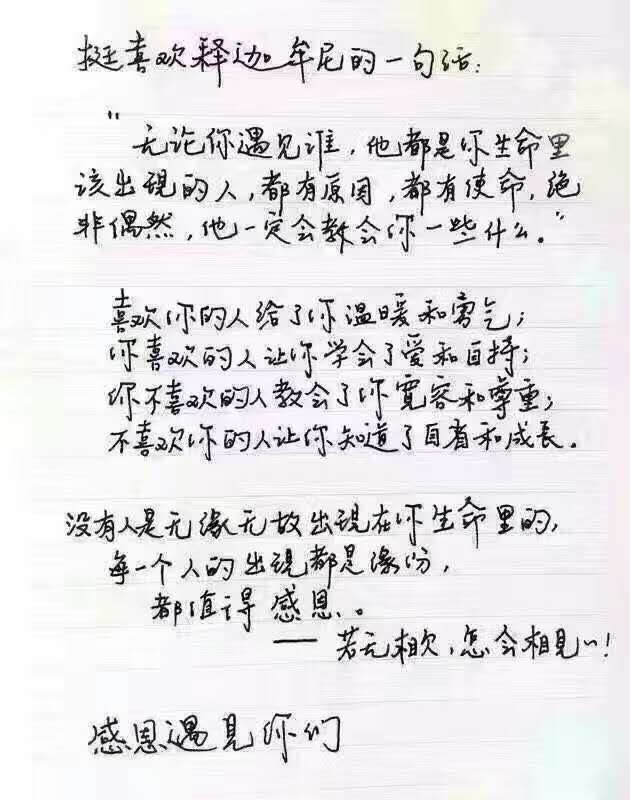 挺喜欢释迦牟尼的一句话：
"
无论你遇见谁，他都是你生命里
该出现的人，都有原因，都有使命，绝
非偶然，他一定会教会你一些什么。"
喜欢你的人给了你温暖和勇气；
你喜欢的人让你学会了爱和自持；
你不喜欢的人教会了你宽容和尊重；
不喜欢你的人让你知道了自省和成长。
没有人是无缘无故出现在你生命里的，
每一个人的出现都是缘份，
都值得感恩。
——若无相欠，怎会相见~！
感恩遇见你们